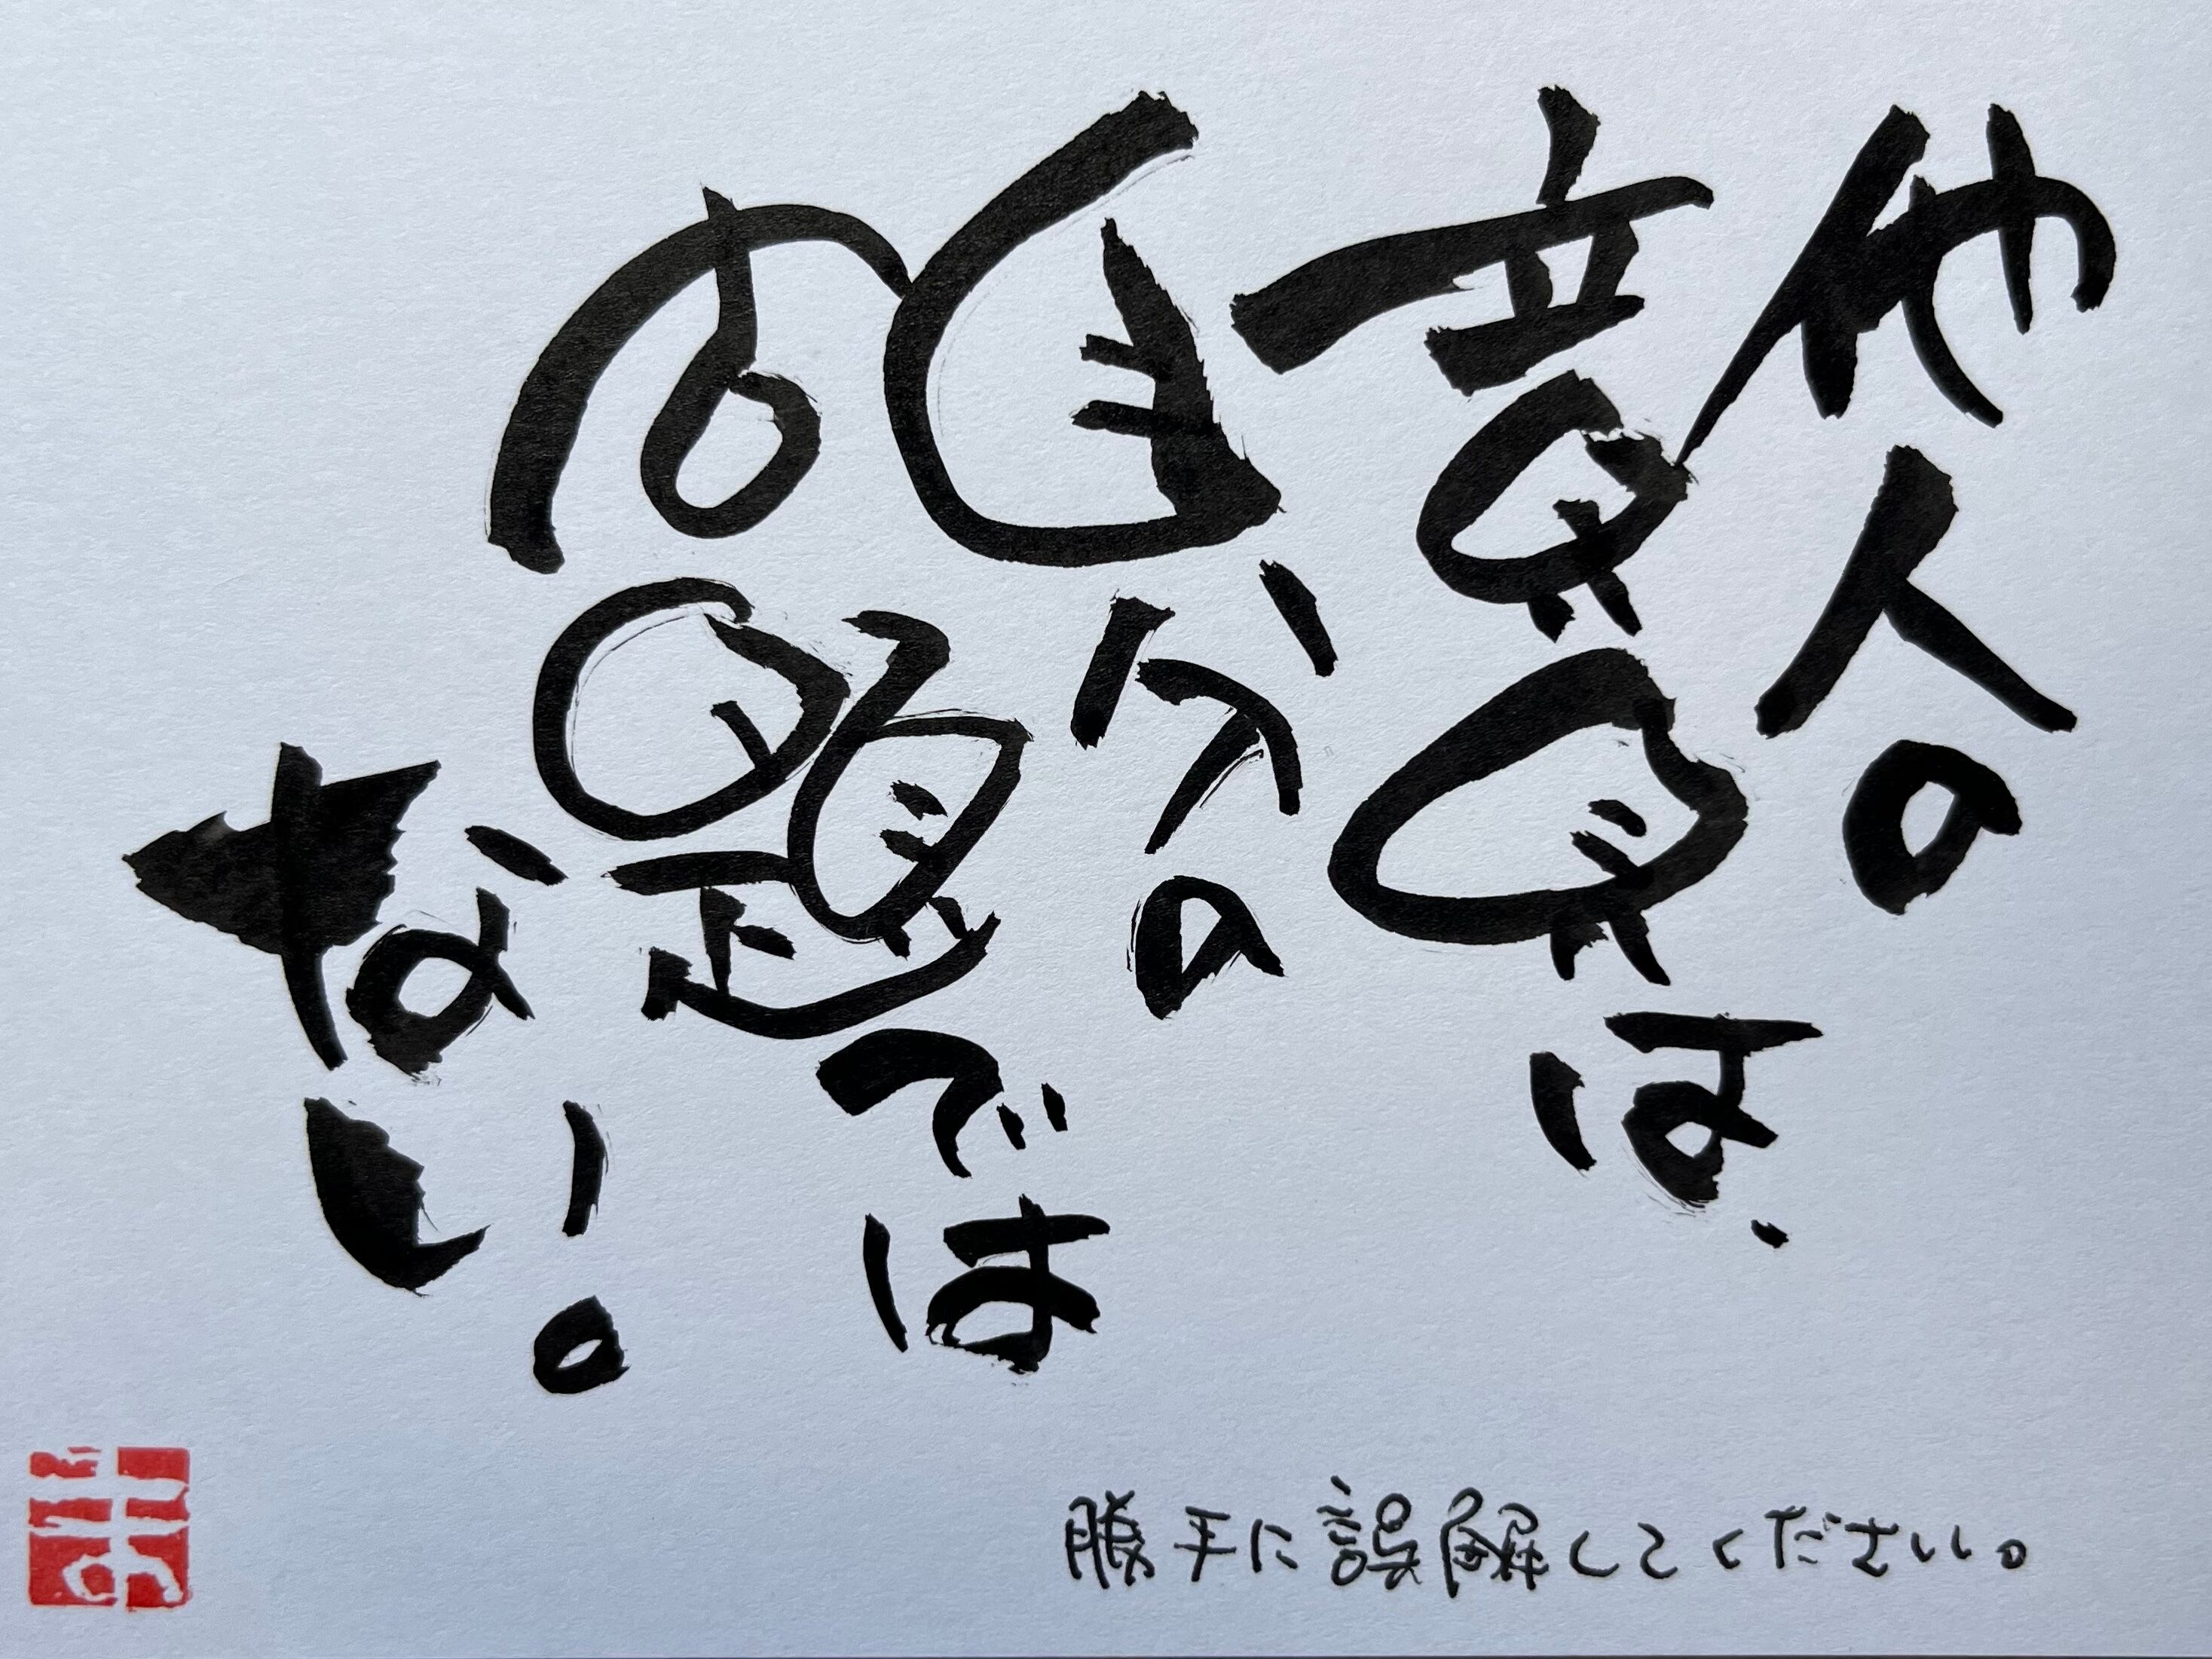 他人の
意見は、
自分の
問題では
ない。
勝手に誤解してください。